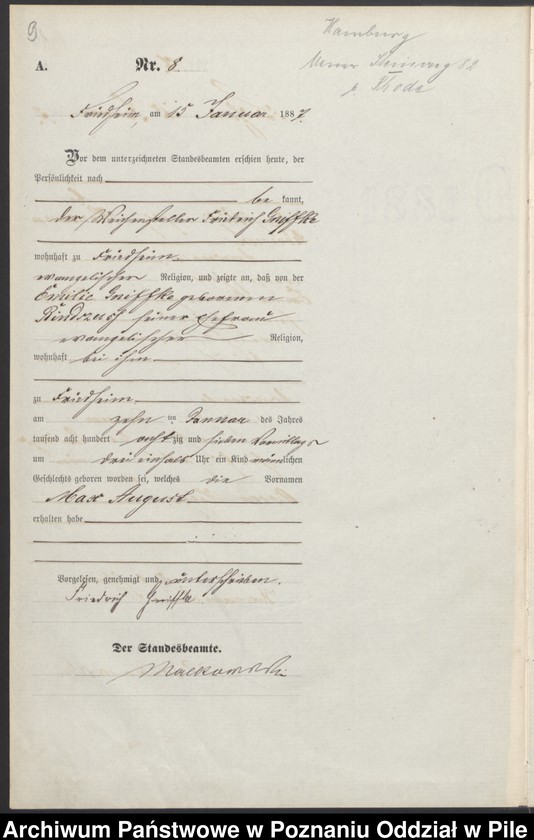 9
Hamburg
A.
Nr. 8
Friedheim, am 15 Januar 1887.
Vor dem unterzeichneten Standesbeamten erschien heute, der
Persönlichkeit nach
be kannt,
der Weichensteller Friedrich Gniffke
wohnhaft zu Friedheim
evangelischer Religion, und zeigte an, daß von der
Emilie Gniffke geborenen
seiner Ehefrau
evangelischer Religion,
wohnhaft bei ihm
zu Friedheim
am zehn ten Januar des Jahres
tausend acht hundert acht zig und sieben Vormittags
um drei einhalb Uhr ein Kind männlichen
Geschlechts geboren worden sei, welches die Vornamen
Max August
erhalten habe
Vorgelesen, genehmigt und unterschrieben.
Friedrich Gniffke
Der Standesbeamte.
Malkowski
Archiwum Państwowe w Poznaniu Oddział w Pile